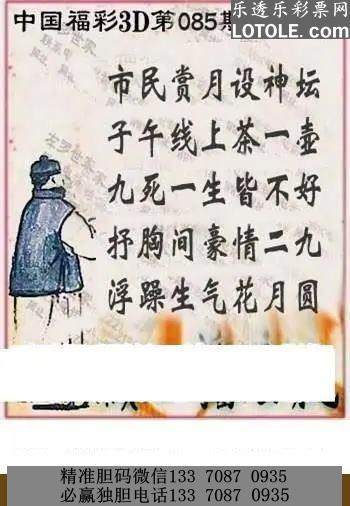 中国福彩3D第085期
乐透乐彩票网
LOTOLE.COM
市民赏月设神坛
子午线上茶一壶
九死一生皆不好
抒胸间豪情二九
浮躁生气花月圆
精准胆码微信133 7087 0935
必赢独胆电话133 7087 0935